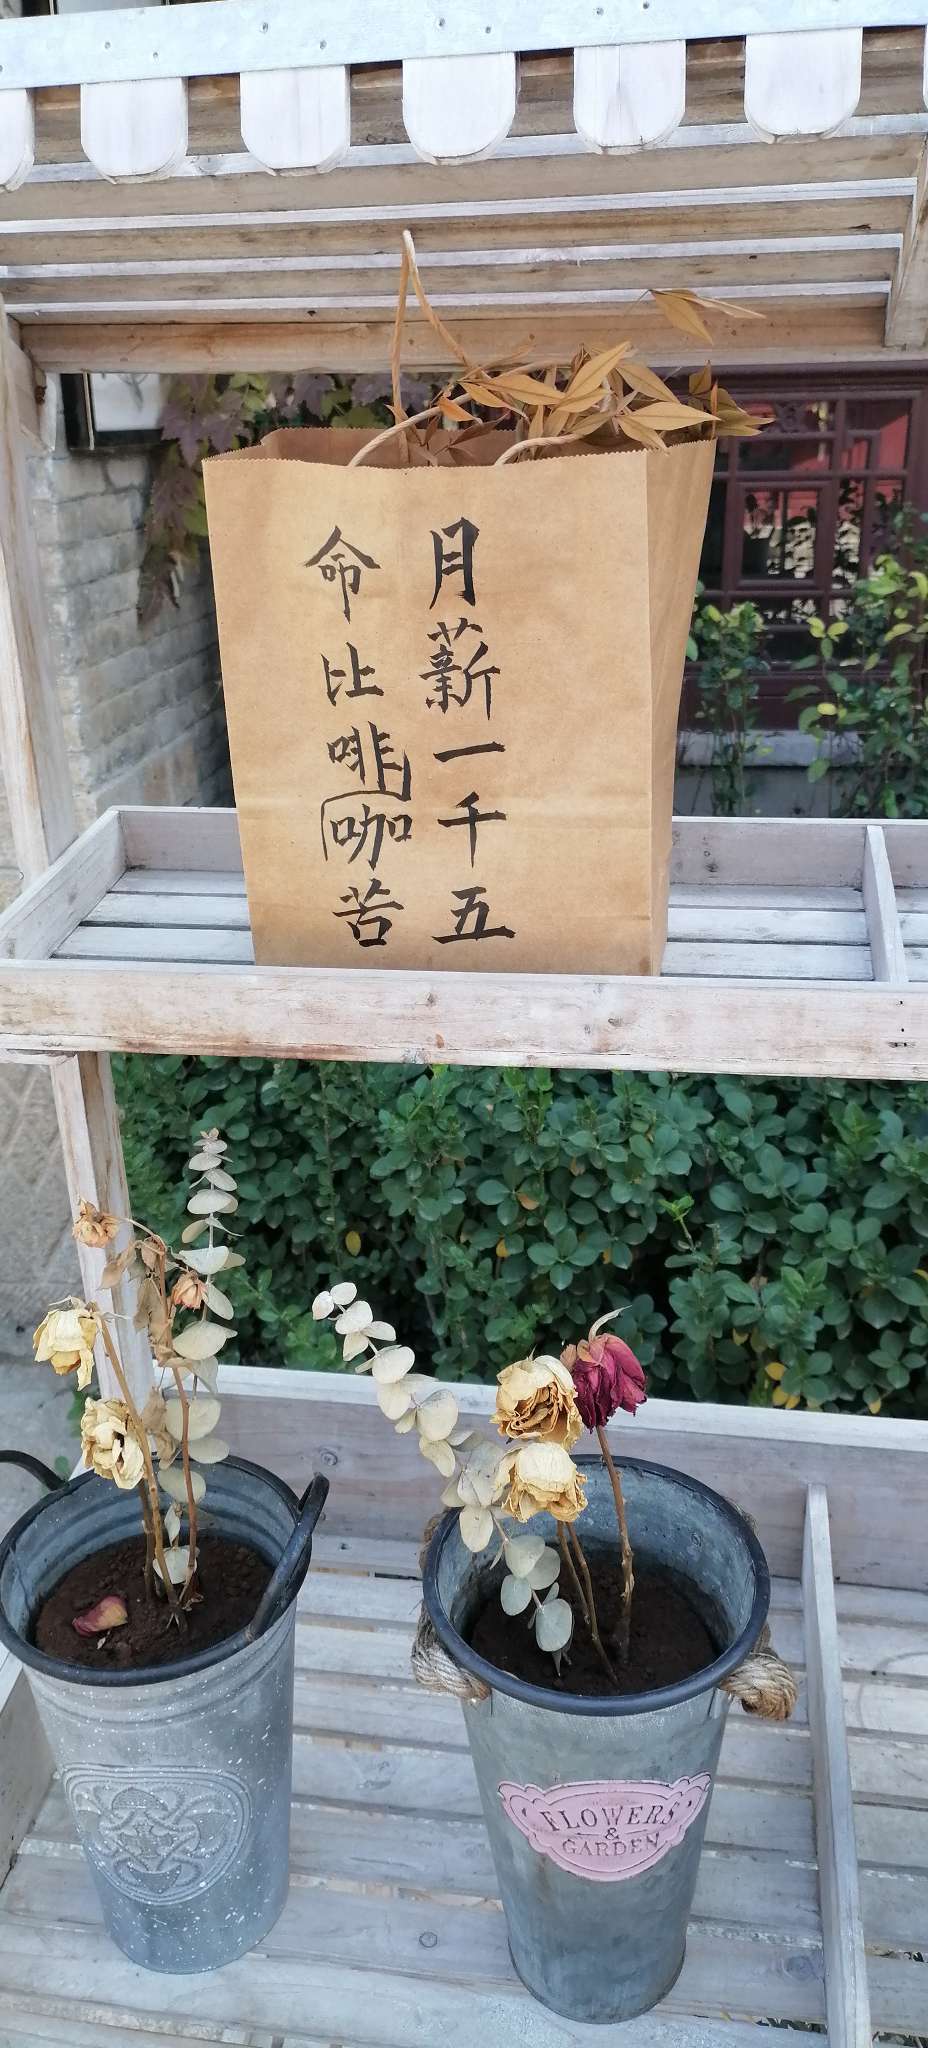 月薪一千五
命比啡咖苦
FLOWERS
&
GARDEN